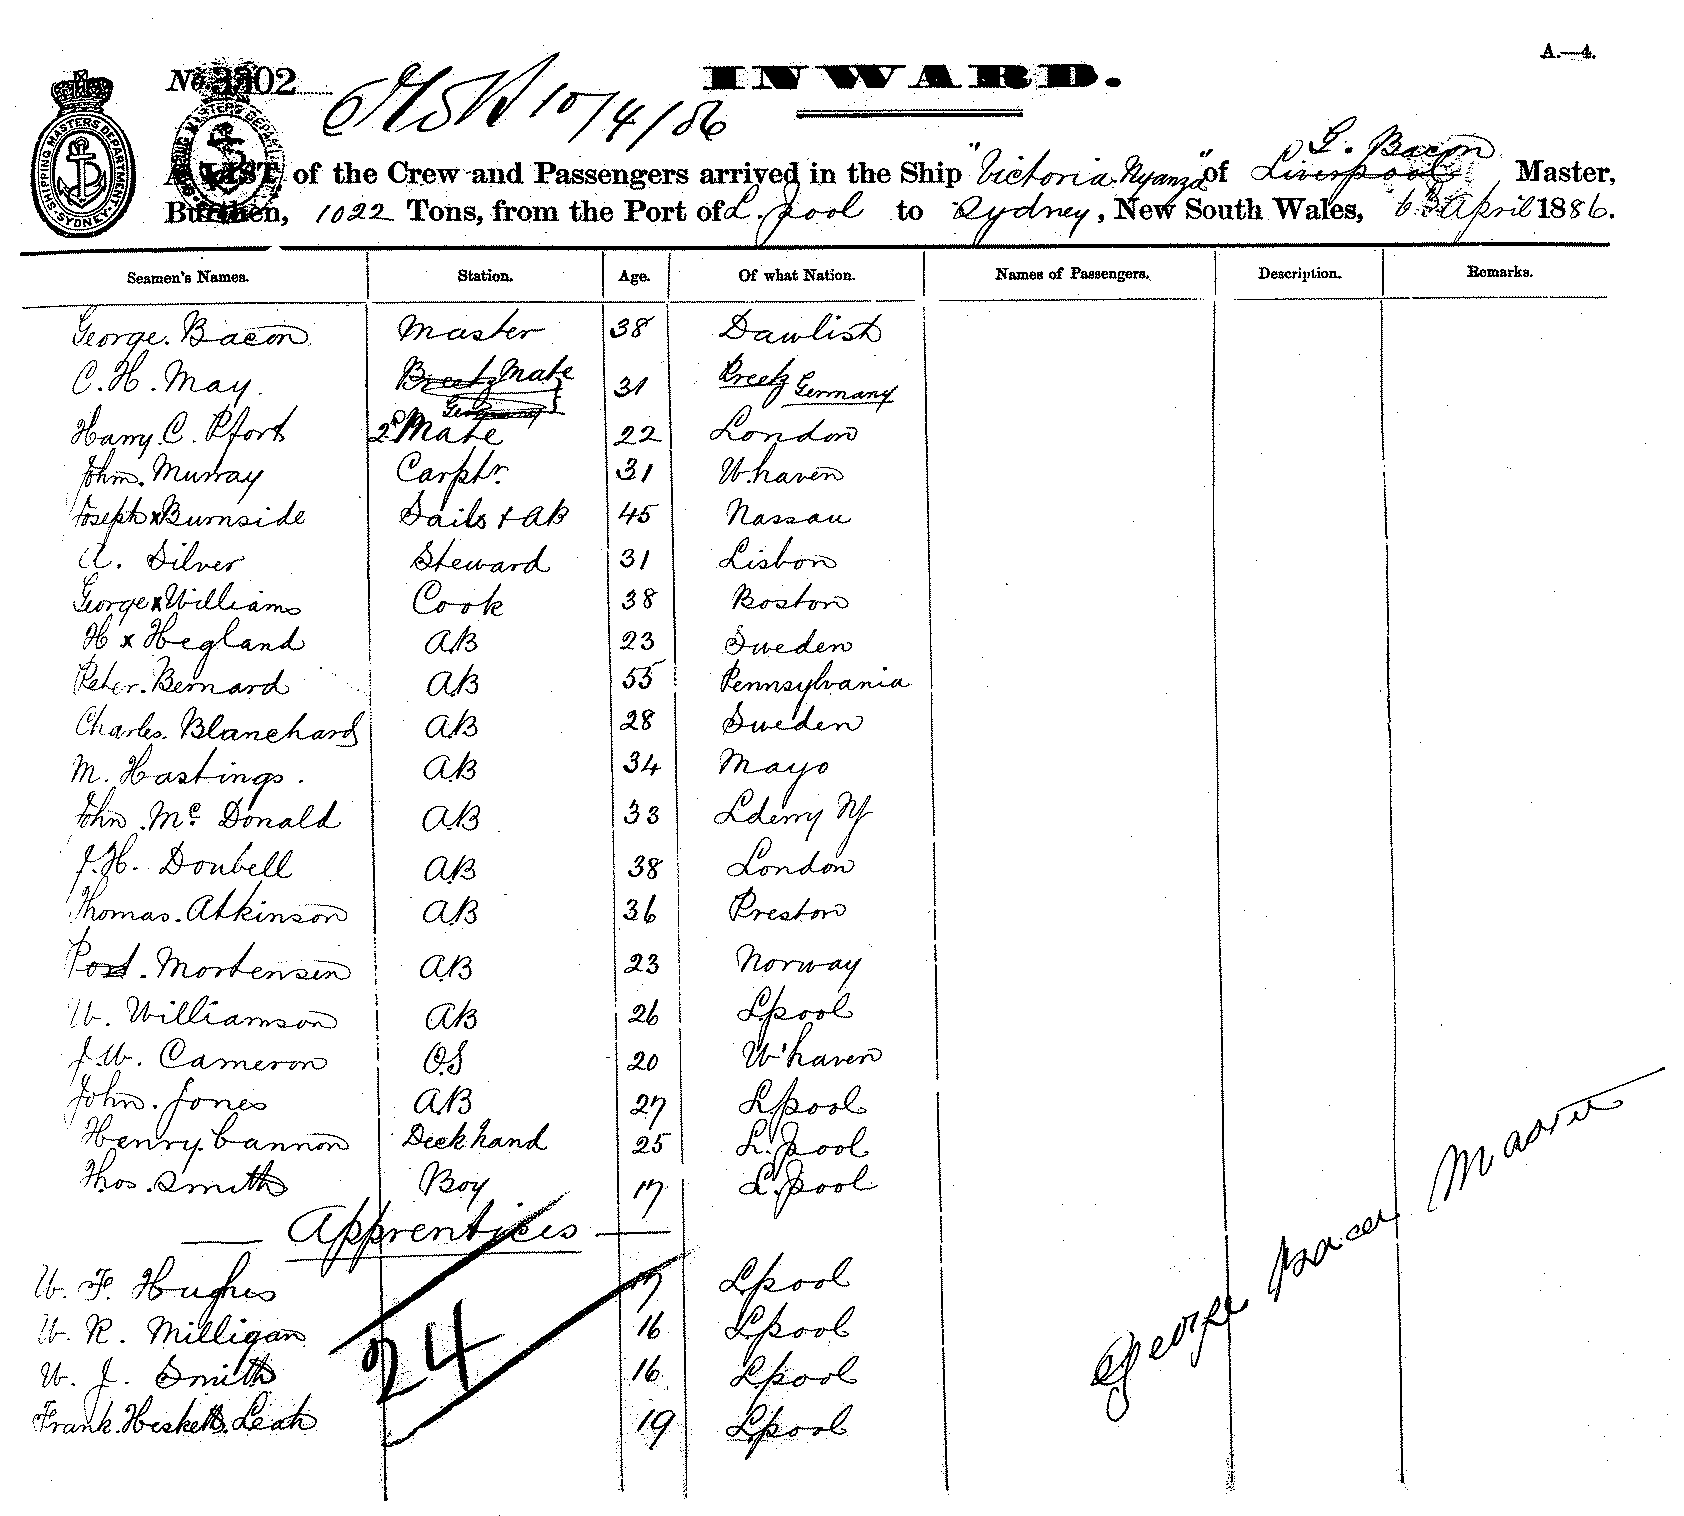 A.—4.
No. 3302 10/4/86 INWARD.
SHIPPING MASTERS DEPARTMENT SYDNEY
G. Bacon
A LIST of the Crew and Passengers arrived in the Ship "Victoria Nyanza" of Liverpool Master,
Burthen, 1022 Tons, from the Port of L.pool to Sydney, New South Wales, 6 April 1886.
Seamen's Names. Station. Age. Of what Nation. Names of Passengers. Description. Remarks.
George. Bacon Master 38 Dawlish
C. H. May. Breetz Mate 31 Preetz Germany
Germany
Harry. C. Pfort 2d Mate 22 London
John. Murray Carptr. 31 W.haven
Joseph x Burnside Sails + AB 45 Nassau
A. Silver Steward 31 Lisbon
George x Williams Cook 38 Boston
H x Hegland AB 23 Sweden
Peter. Bernard AB 55 Pennsylvania
Charles. Blanchard AB 28 Sweden
M. Hastings. AB 34 Mayo
John. Mc Donald AB 33 Lderry
J. H. Doubell AB 38 London
Thomas. Atkinson AB 36 Preston
Mortensen AB 23 Norway
W. Williamson AB 26 Lpool
J. W. Cameron OS 20 W'haven
John. Jones AB 27 Lpool
Henry. Cannon Deck hand 25 L.pool
Thos. Smith Boy 17 L.pool
— Apprentices —
W. F. Hughes 17 Lpool
W. R. Milligan 16 Lpool
W. J. Smith 16 Lpool
Frank. Hesketh. Leah 19 Lpool
24
George Bacon Master